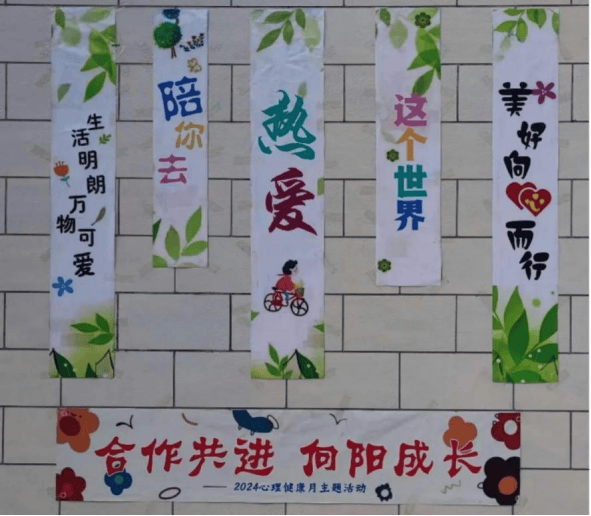 生活明朗
万物可爱
陪你去
热爱
这个世界
美好向
而行
合作共进 向阳成长
—— 2024心理健康月主题活动